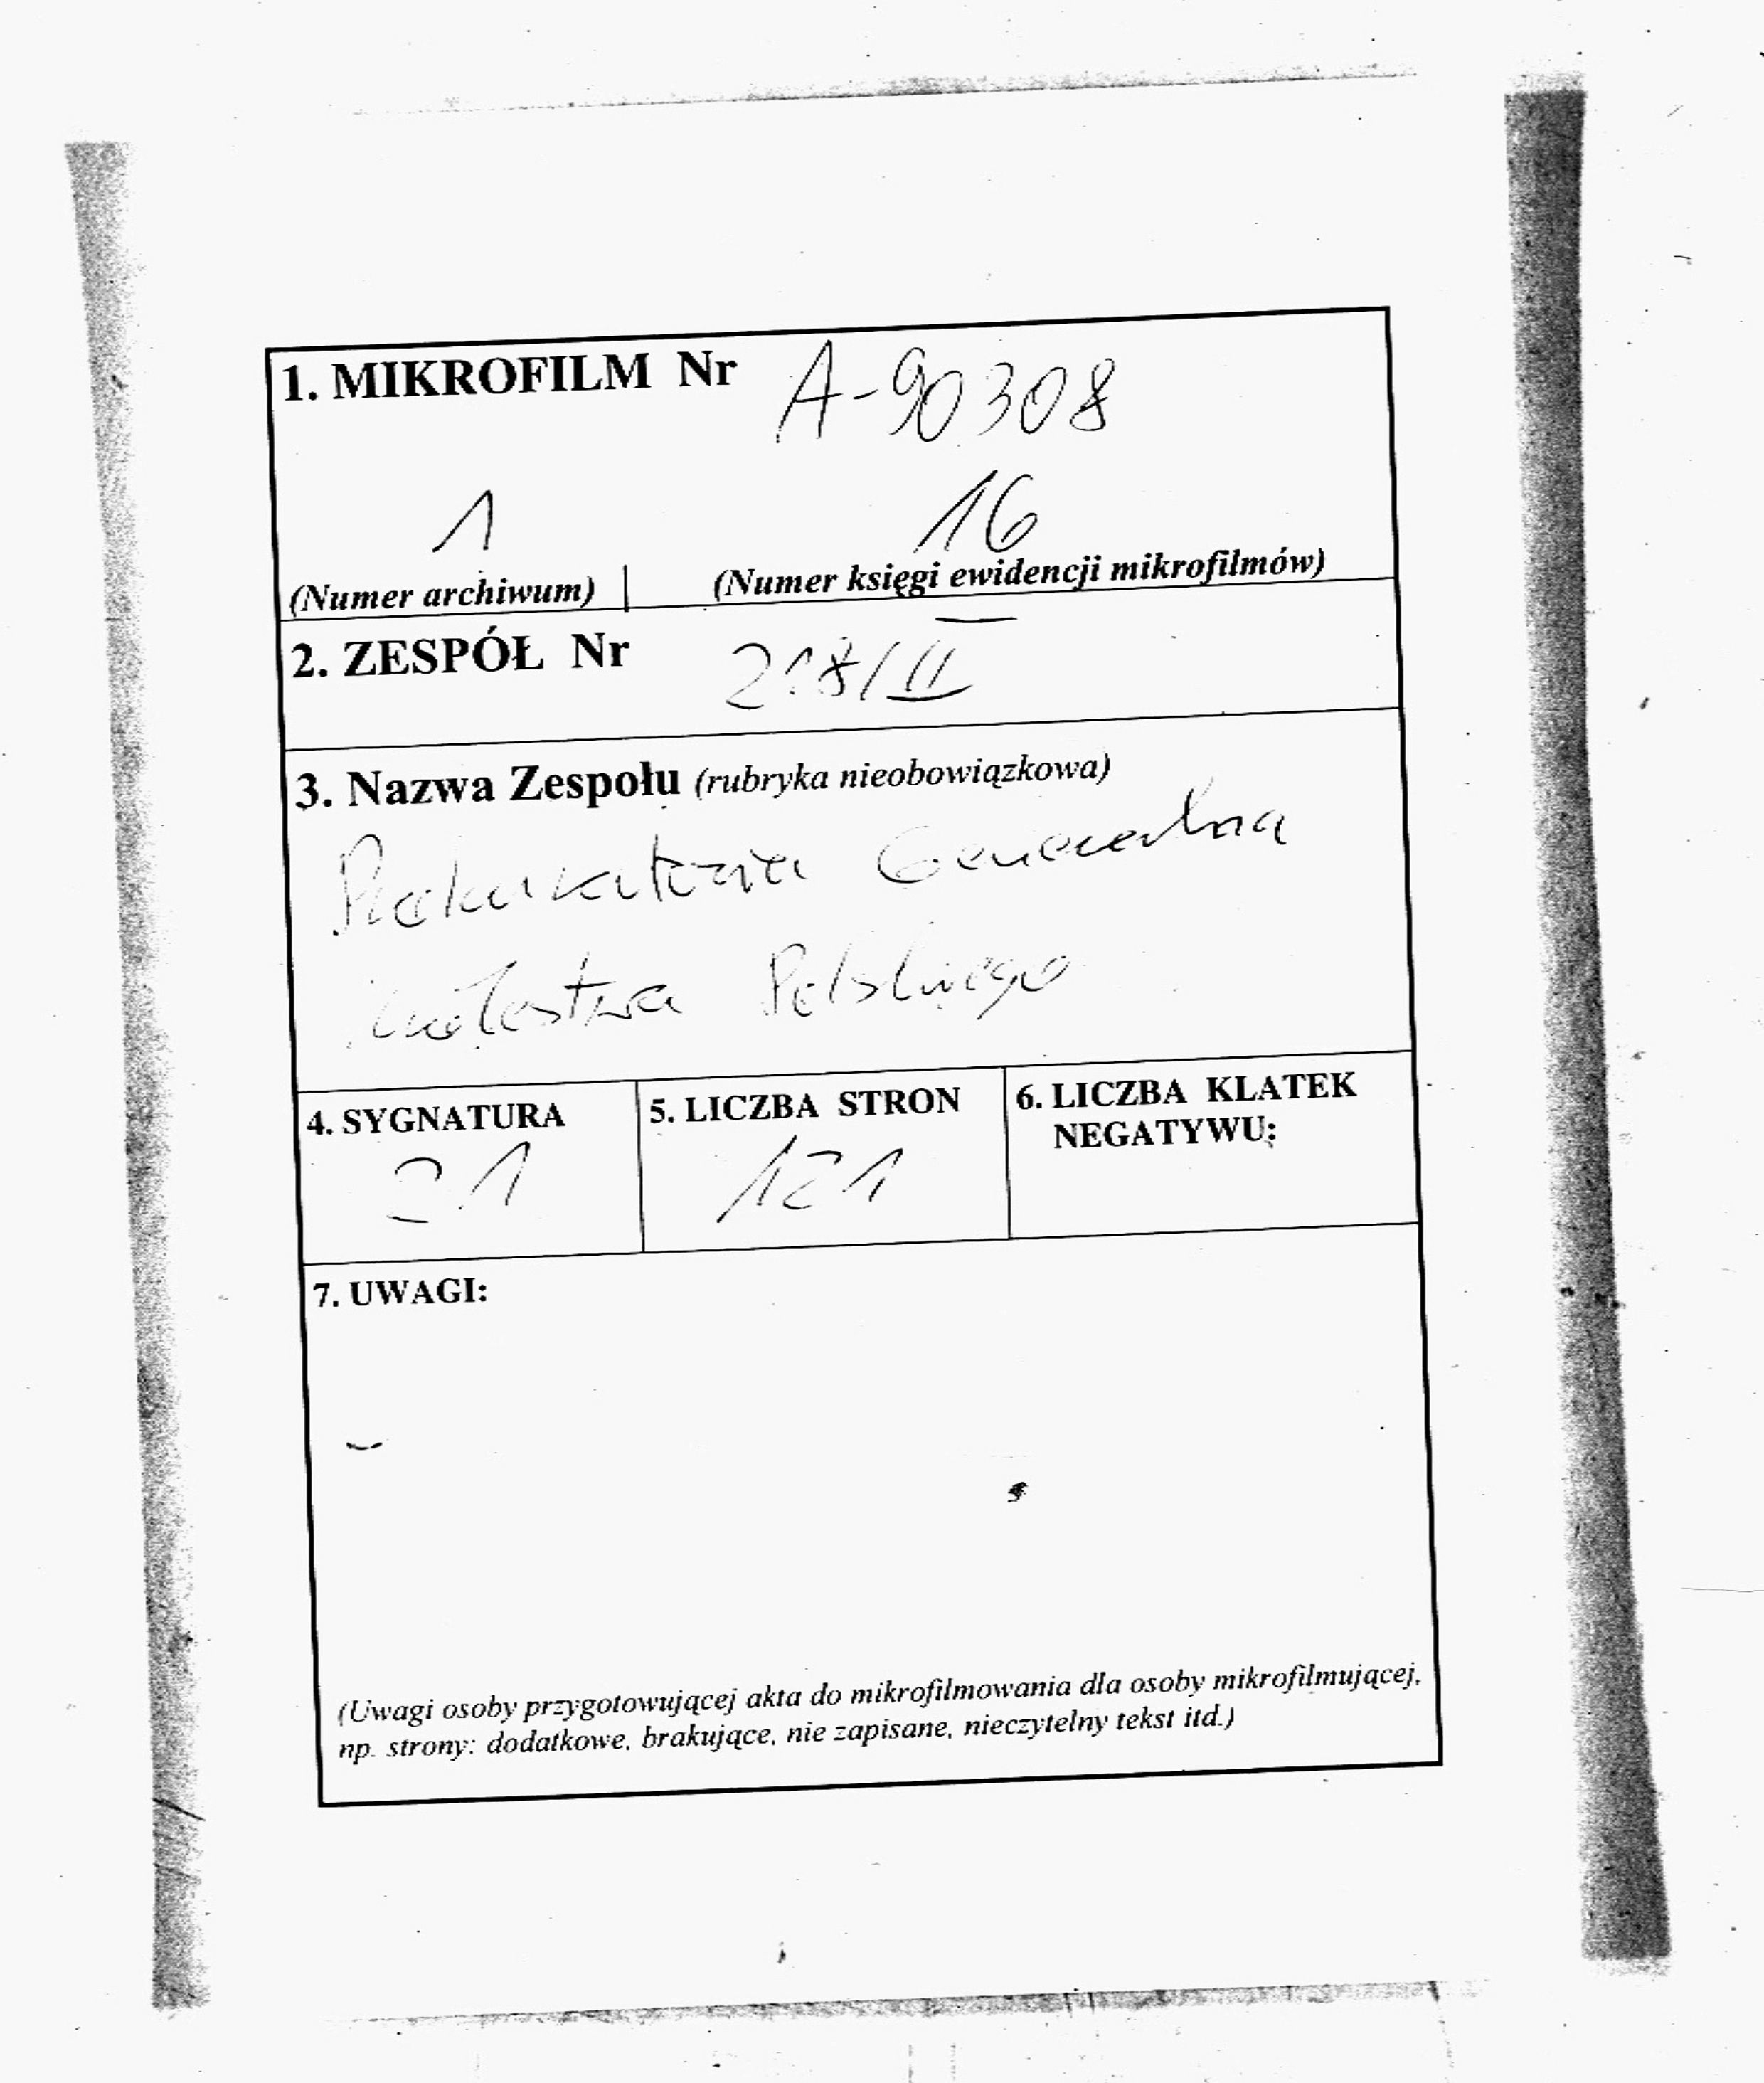 1. MIKROFILM Nr A-90308
1 16
(Numer archiwum) | (Numer księgi ewidencji mikrofilmów)
2. ZESPÓŁ Nr 218/II
3. Nazwa Zespołu (rubryka nieobowiązkowa)
Prokuratoria Generalna
Królestwa Polskiego
4. SYGNATURA
21
5. LICZBA STRON
121
6. LICZBA KLATEK
NEGATYWU:
7. UWAGI:
(Uwagi osoby przygotowującej akta do mikrofilmowania dla osoby mikrofilmującej,
np. strony: dodatkowe, brakujące, nie zapisane, nieczytelny tekst itd.)